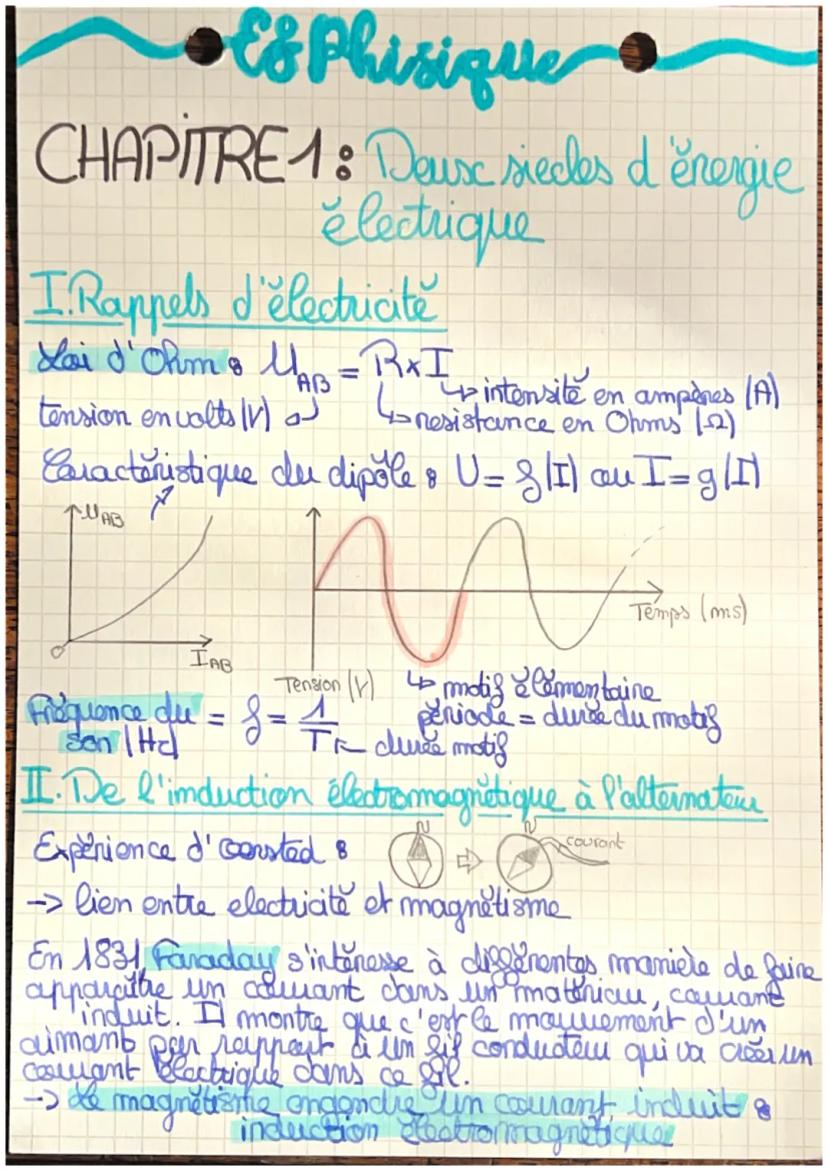 ES Phisique
CHAPITRE 1 : Deux siecles d'énergie
électrique
I. Rappels d'électricité
Loi d'Ohm : U_AB = R x I
↳ intensité en ampères (A)
tension en volts (V) ↳ resistance en Ohms (Ω)
Caractéristique du dipôle : U = f(I) ou I = g(I)
U_AB
Temps (ms)
O I_AB
Tension (V) ↳ motif élémentaire
Fréquence du = f = 1/T période = durée du motif
son (Hz) durée motif
II. De l'imduction électromagnétique à l'alternateur
N N
Expérience d'oersted : ⇨ courant
-> lien entre electricité et magnétisme
En 1831 Faraday s'intéresse à différentes manière de faire
apparaître un courant dans un matériau, courant
induit. Il montre que c'est le mouvement d'un
aimant par rapport à un fil conducteur qui va créer un
courant électrique dans ce fil.
-> Le magnétisme engendre un courant induit :
induction électromagnétique